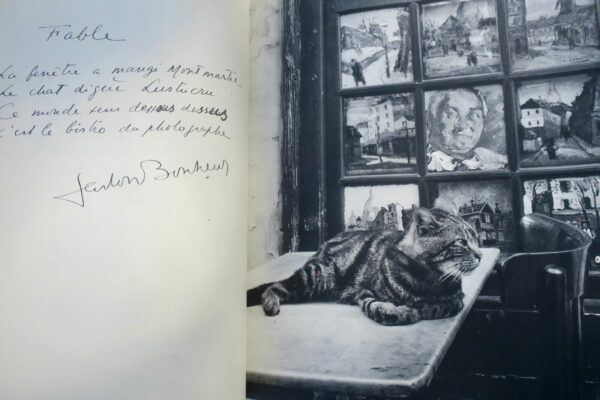 Fable
La fenêtre a mangé Montmartre
Le chat digère Lustucru
Ce monde sens dessous dessus
c'est le bistro du photographe
Gaston Bonheur